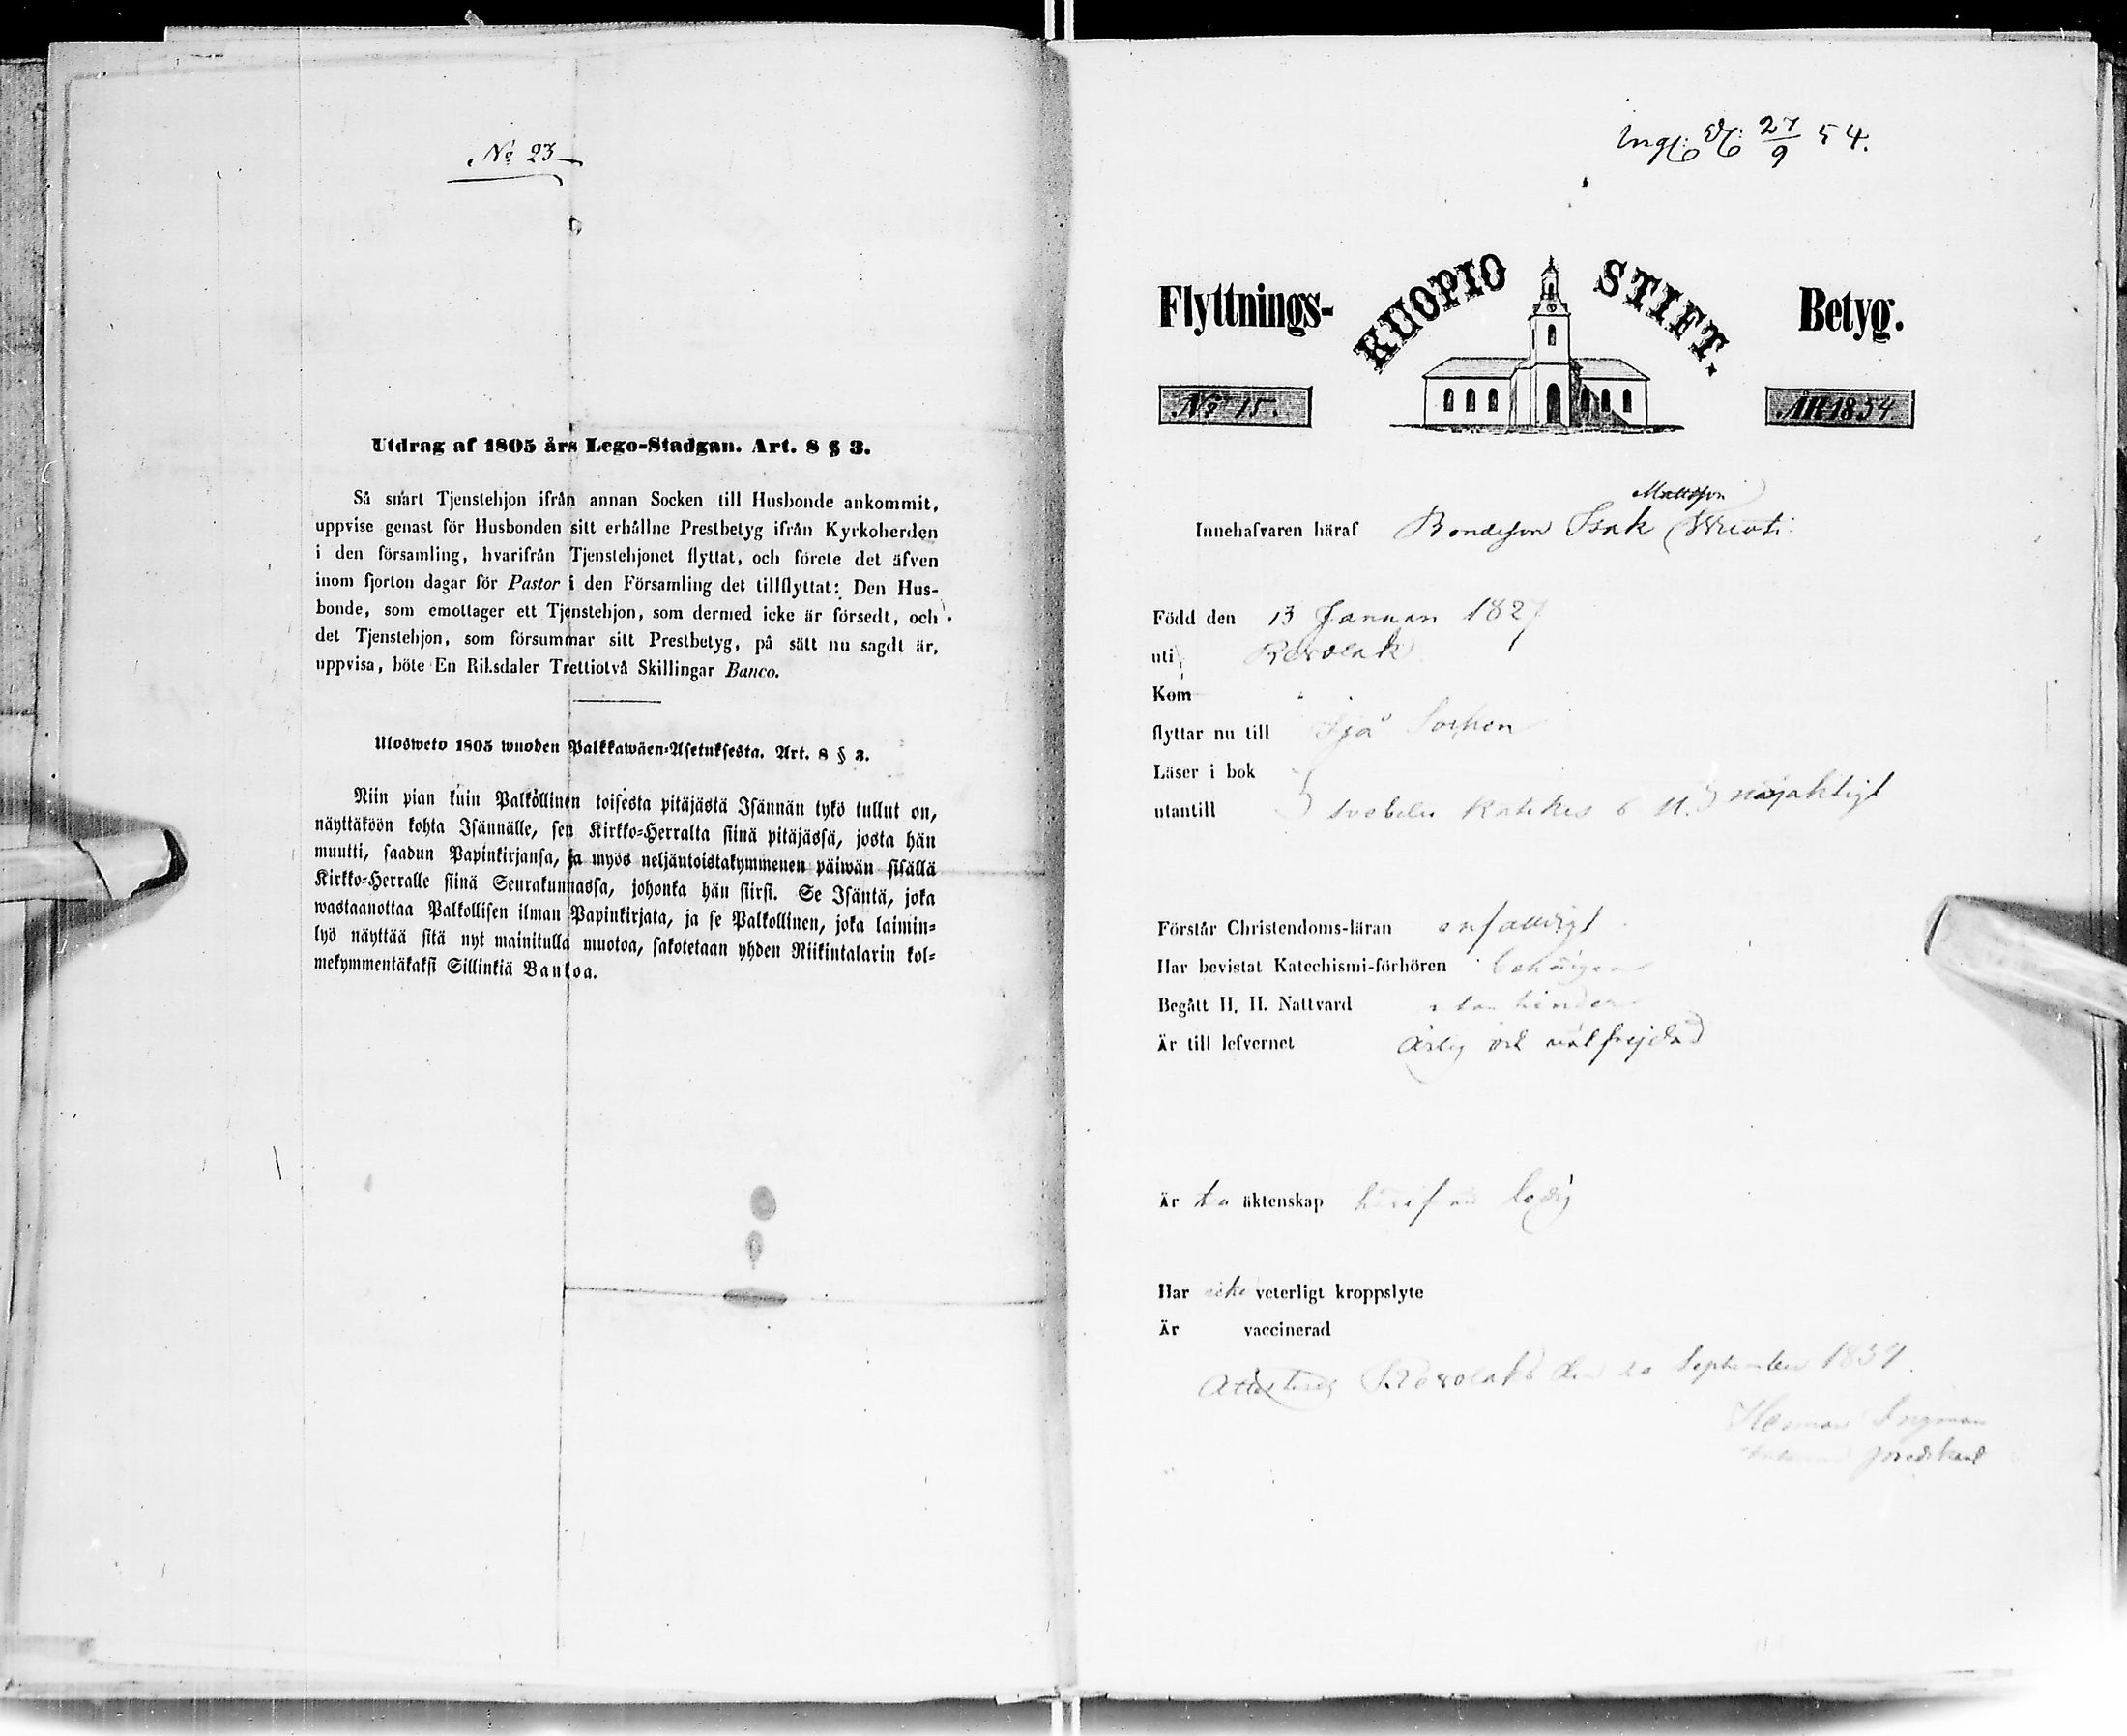 No 23
Utdrag af 1805 års Lego-Stadgan. Art. 8 § 3.
Så snart Tjenstehjon ifrån annan Socken till Husbonde ankommit,
uppvise genast för Husbonden sitt erhållne Prestbetyg ifrån Kyrkoherden
i den församling, hvarifrån Tjenstehjonet flyttat, och förete det äfven
inom fjorton dagar för Pastor i den Församling det tillflyttat: Den Hus-
bonde, som emottager ett Tjenstehjon, som dermed icke är försedt, och
det Tjenstehjon, som försummar sitt Prestbetyg, på sätt nu sagdt är,
uppvisa, böte En Riksdaler Trettiotvå Skillingar Banco.
Ulosweto 1805 wuoden Palkkawäen-Asetuksesta. Art. 8 § 3.
Niin pian kuin Palkollinen toisesta pitäjästä Isännän tykö tullut on,
näyttäköön kohta Isännälle, sen Kirkko-Herralta siinä pitäjässä, josta hän
muutti, saadun Papinkirjansa, ja myös neljäntoistakymmenen päiwän sisällä
Kirkko-Herralle siinä Seurakunnassa, johonka hän siirsi. Se Isäntä, joka
wastaanottaa Palkollisen ilman Papinkirjata, ja se Palkollinen, joka laimin-
lyö näyttää sitä nyt mainitulla muotoa, sakotetaan yhden Riikintalarin kol-
mekymmentäkaksi Sillinkiä Bankoa.
27/9 54.
Flyttnings- KUOPIO STIFT. Betyg.
No 15. ÅR 1854
Mattsson
Innehafvaren häraf Bondeson Isak
Född den 13 Januari 1827
uti Revolaks
Kom
flyttar nu till Sjå Socken
Läser i bok
utantill Svebelii Katekes nöjaktigt
Förstår Christendoms-läran enfaldigt
Har bevistat Katechismi-förhören behörigen
Begått H. H. Nattvard utan hinder
Är till lefvernet ärlig och välfrejdad
Är till äktenskap härifrån ledig
Har icke veterligt kroppslyte
Är vaccinerad
Attesterar Revolaks den 20 September 1854.
Herman Ingman
predikant